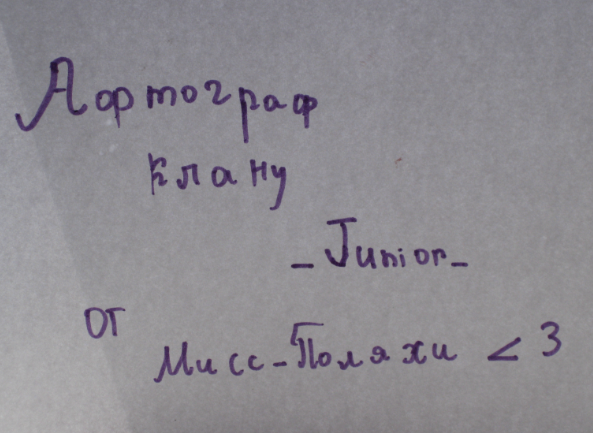 Аортограф
клану
_Junior_
от
Мисс-Поляхи <3